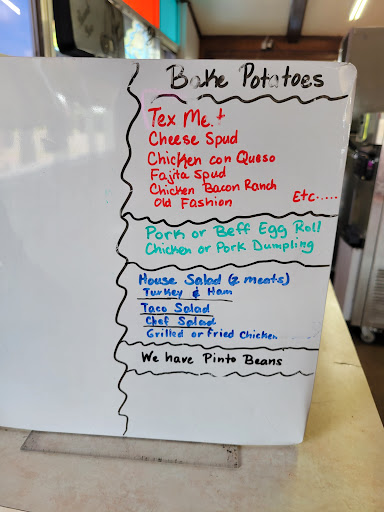 Bake Potatoes
Tex Me.t
Cheese Spud
Chicken con Queso
Fajita Spud
Chicken Bacon Ranch
Old Fashion Etc.....
Pork or Beff Egg Roll
Chicken or Pork Dumpling
House Salad (2 meats)
Turkey & Ham
Taco Salad
Chef Salad
Grilled or Fried Chicken
We have Pinto Beans